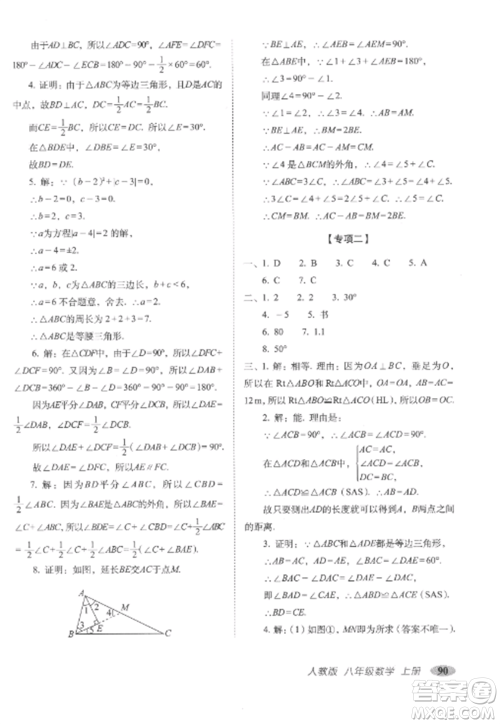 由于AD⊥BC，所以∠ADC=90°，∠AFE=∠DFC=
180°-90°-30°=60°.
4. 证明：由于△ABC为等边三角形，且D是AC的
中点，故BD⊥AC，DC=1/2AC=1/2BC.
而CE=1/2BC，所以DC=CE，所以∠E=∠CDE=
1/2∠ACB=30°. 又因为∠DBC=1/2∠ABC=30°，
故BD=DE.
5. 解：∵(b-2)²+|c-3|=0，
∴b-2=0，c-3=0.
∴b=2，c=3.
∵a为方程|a-4|=2的解，
∴a-4=±2.
∴a=6或2.
∵a，b，c为△ABC的三边长，b+c<6，
∴a=6不合题意，舍去.
∴a=2.
∴△ABC是等腰三角形.
6. 解：在△CDF中，因为∠D=∠C，所以∠D+
∠DCF=90°. 又因为∠A+∠B+∠C+∠D=360°，所以
∠DAB+∠DCB=360°-∠B-∠D=360°-90°-90°=180°.
因为AE平分∠DAB，CF平分∠DCB，所以∠DAE=
1/2∠DAB，∠DCF=1/2∠DCB，所以∠DAE+∠DCF=90°，
所以∠DAE=∠DFC，所以AE∥FC.
7. 解：因为BD平分∠ABC，所以∠DBC=
1/2∠ABC. 又因为∠ABC=∠C，所以∠ADB=∠DBC+
∠C=1/2∠ABC+∠C=1/2∠C+∠C=3/2∠C.
8. 证明：如图，延长BE交AC于点M.
A
1
2
4
M
3
E
5
B
C
∵BE⊥AE，∴∠AEB=∠AEM=90°.
在△ABE中，∵∠1+∠3+∠AEB=180°，
∴∠3=90°-∠1.
同理∠4=90°-∠2.
∵∠1=∠2，∴∠3=∠4. ∴AB=AM.
∵BE⊥AE，∴BM=2BE.
∴AC-AB=AC-AM=CM.
∵∠4是△BCM的外角，∴∠4=∠5+∠C.
∵∠ABC=3∠C，∴∠ABC=∠3+∠5=∠4+∠5.
∴3∠C=∠4+∠5=2∠5+∠C. ∴∠5=∠C.
∴CM=BM. ∴AC-AB=BM=2BE.
【专项二】
一、1. D 2. B 3. C 4. A 5. B
6. C 7. C 8. C
二、1. 2 2. 3 3. 30°
4. -5 5. 书
6. 80 7. 1.1
8. 50°
三、1. 解：相等. 理由：因为OA⊥BC，垂足为O，
所以在Rt△ABO和Rt△ACO中，AO=AO，AB=AC=
12 m，所以Rt△ABO≌Rt△ACO(HL)，所以OB=OC.
2. 解：能. 理由是：
∵∠ACB=90°，∴∠ACD=90°.
在△ACB和△ACD中，
AC=AC，
∠ACB=∠ACD，
BC=CD，
∴△ACB≌△ACD(SAS). ∴AB=AD.
故只要测出AD的长，即可得出A，B两点之间
的距离.
3. 证明：∵△ABC和△ADE都是等边三角形，
∴AB=AC，AD=AE，∠BAC=∠DAE=60°.
∴∠BAC-∠DAC=∠DAE-∠DAC，
即∠BAD=∠CAE. ∴△BAD≌△CAE(SAS).
∴BD=CE.
4. 解：(1)如图①，MN为所求(答案不唯一).
人教版 八年级数学 上册
90